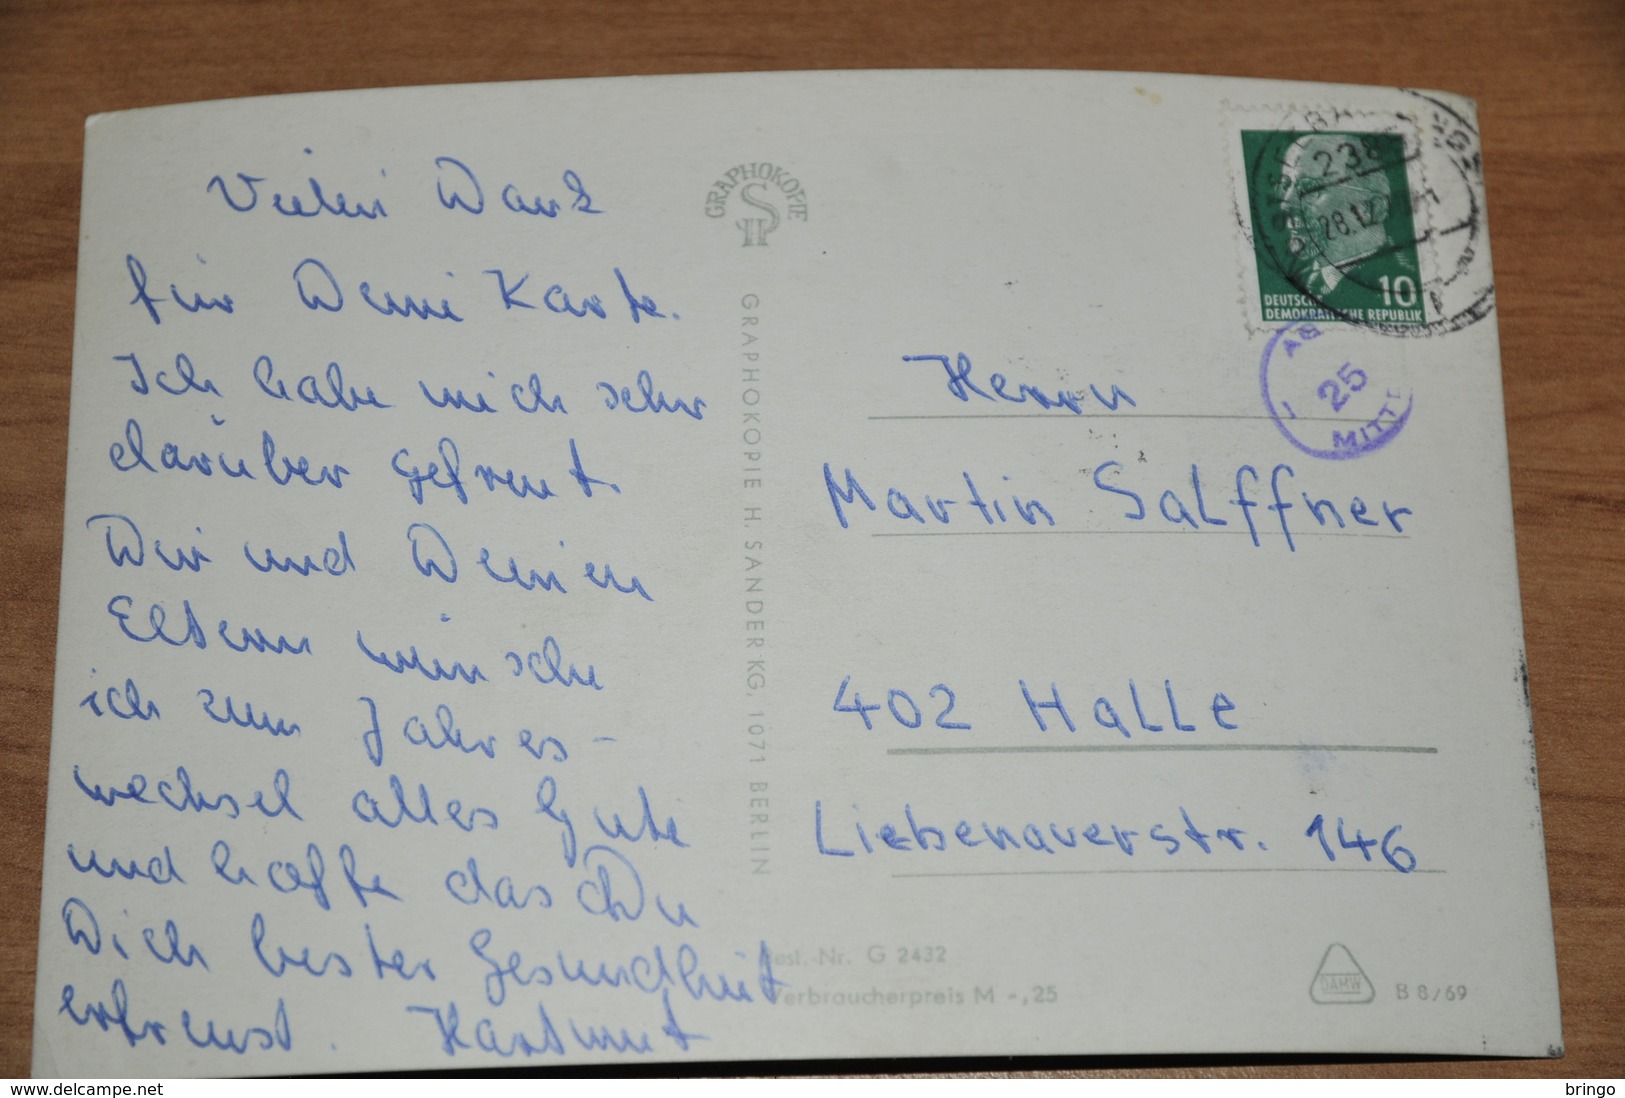 Vielen Dank
für Deine Karte.
Ich habe mich sehr
darüber gefreut.
Dir und Deinen
Eltern wünsche
ich zum Jahres-
wechsel alles Gute
und hoffe das Du
Dich bester Gesundheit
erfreust. Hartmut
GRAPHOKOPIE
GRAPHOKOPIE H. SANDER KG, 1071 BERLIN
238
28.12.7
10
DEUTSCHE
DEMOKRATISCHE REPUBLIK
25
MITT
Herrn
Martin Salffner
402 Halle
Liebenauerstr. 146
Best.-Nr. G 2432
Verbraucherpreis M -,25
DAMW
B 8/69
delcampe.net
bringo